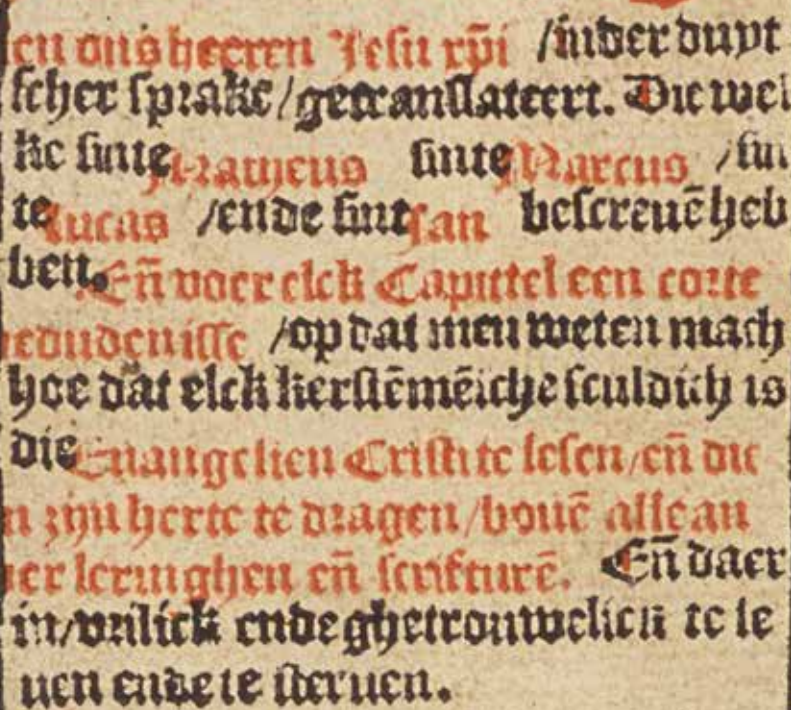 en ons heeren Jesu xp̄i /inder duyt
scher sprake/getranslateert. Die wel
ke sinte Matheus sinte Marcus /sin
te Lucas /ende sint Jan bescreuē heb
ben. En̄ voer elck Capittel een corte
bedudenisse /op dat men weten mach
hoe dat elck kerstē mēsche sculdich is
die Euangelien Cristi te lesen/en̄ die
n zijn herte te dragen/bouē alle an
er leringhen en̄ scrifturē. En̄ daer
in/vrilick ende ghetrouwelick te le
uen ende te steruen.